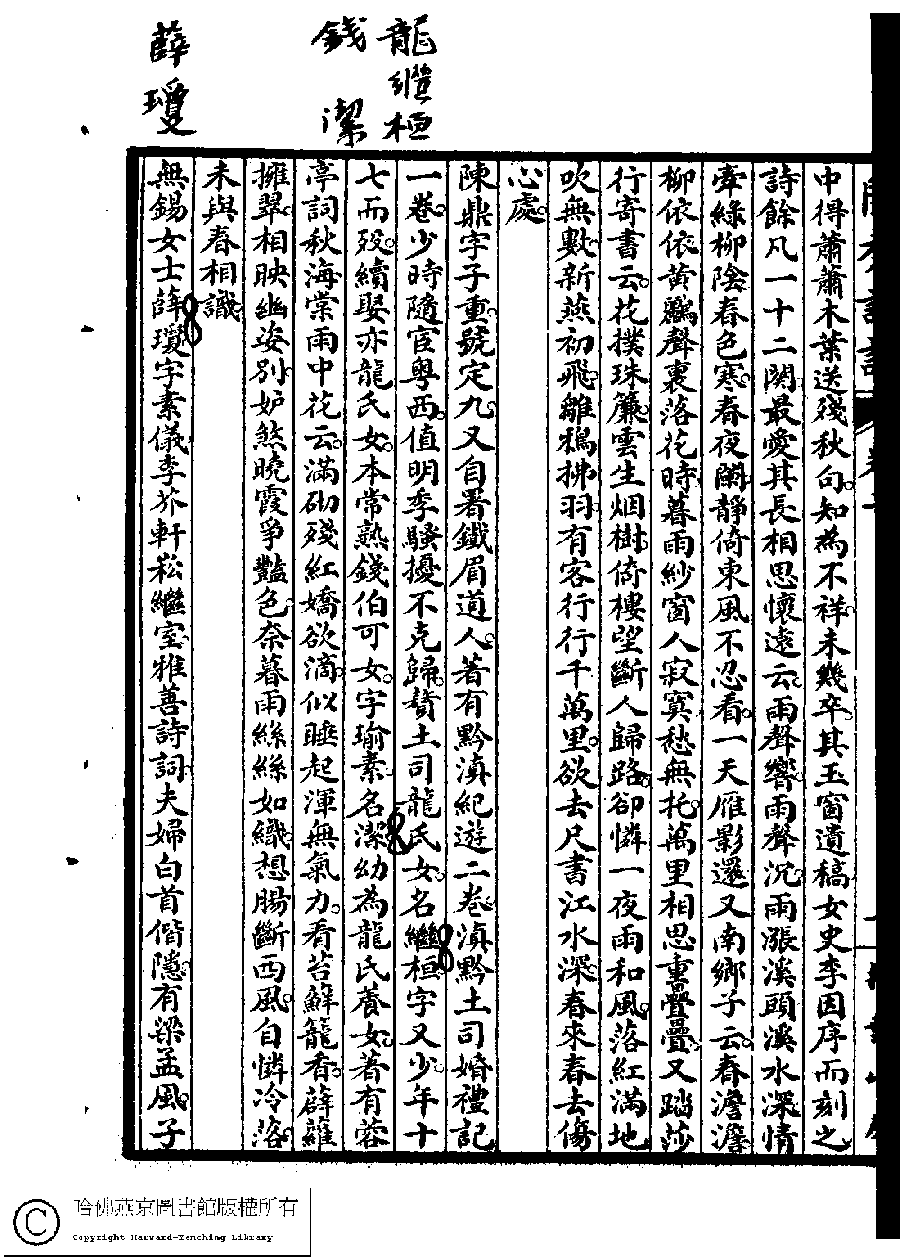 中得蕭蕭木葉送殘秋句知為不祥未幾卒其玉窗遺稿女史李因序而刻之
詩餘凡一十二闋最愛其長相思懷遠云雨聲響雨聲沉雨漲溪頭溪水深情
牽綠柳陰春色寒春夜闌靜倚東風不忍看一天雁影還又南鄉子云春澹澹
柳依依黃鸝聲裏落花時暮雨紗窗人寂寞愁無托萬里相思重疊疊又踏莎
行寄書云花撲珠簾雲生烟樹倚樓望斷人歸路卻憐一夜雨和風落紅滿地
吹無數新燕初飛雛鴉拂羽有客行行千萬里欲去尺書江水深春來春去傷
心處
陳鼎字子重號定九又自署鐵眉道人著有黔滇紀遊二卷滇黔土司婚禮記
一卷少時隨宦粵西值明季騷擾不克歸贅土司龍氏女名繼桓字又少年十
七而歿續娶亦龍氏女本常熟錢伯可女字瑜素名潔幼為龍氏養女著有蓉
亭詞秋海棠雨中花云滿砌殘紅嬌欲滴似睡起渾無氣力看苔蘚籠香薜蘿
擁翠相映幽姿別妒煞曉霞爭豔色奈暮雨絲絲如織想腸斷西風自憐冷落
未與春相識
無錫女士薛瓊字素儀李芥軒崧繼室雅善詩詞夫婦白首偕隱有梁孟風子
龍繼桓
錢潔
薛瓊
哈佛燕京圖書館版權所有
Copyright Harvard-Yenching Library